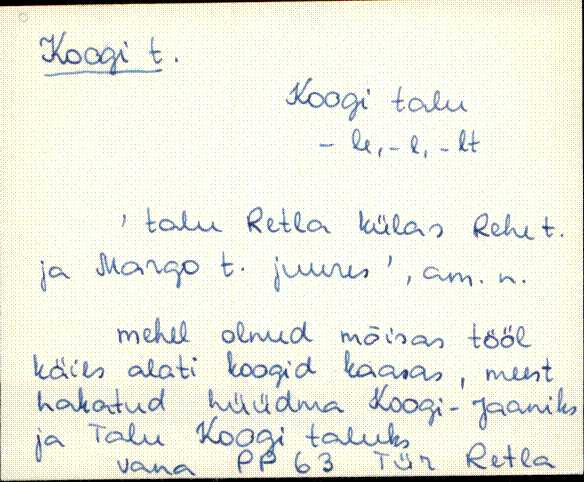 Koogi t.
Koogi talu
- le, - l, - lt
' talu Retla külas Rehe t.
ja Margo t. juures', am. n.
mehel olnud mõisas tööl
käies alati koogid kaasas, meest
hakatud hüüdma Koogi-Jaaniks
ja Talu Koogi taluks
vana PP 63 Tür Retla